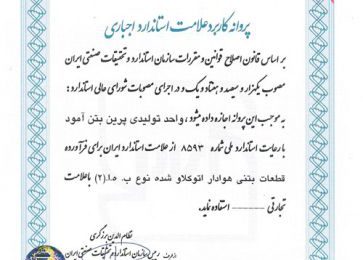 پروانه کاربرد علامت استاندارد اجباری
بر اساس قانون اصلاح قوانین و مقررات سازمان استاندارد و تحقیقات صنعتی ایران
مصوب یکهزار و سیصد و هفتاد و یک و در اجرای مصوبات شورای عالی استاندارد :
به موجب این پروانه اجازه داده میشود ، واحد تولیدی پرین بتن آمود
با رعایت استاندارد ملی شماره ۸۵۹۳ از علامت استاندارد ایران برای فرآورده
قطعات بتنی هوادار اتوکلاو شده نوع ب. ص.ا.(۲) با علامت
تجارتی -------- استفاده نماید.
نظام الدین برزگری
رییس سازمان استاندارد و تحقیقات صنعتی ایران
از طرف